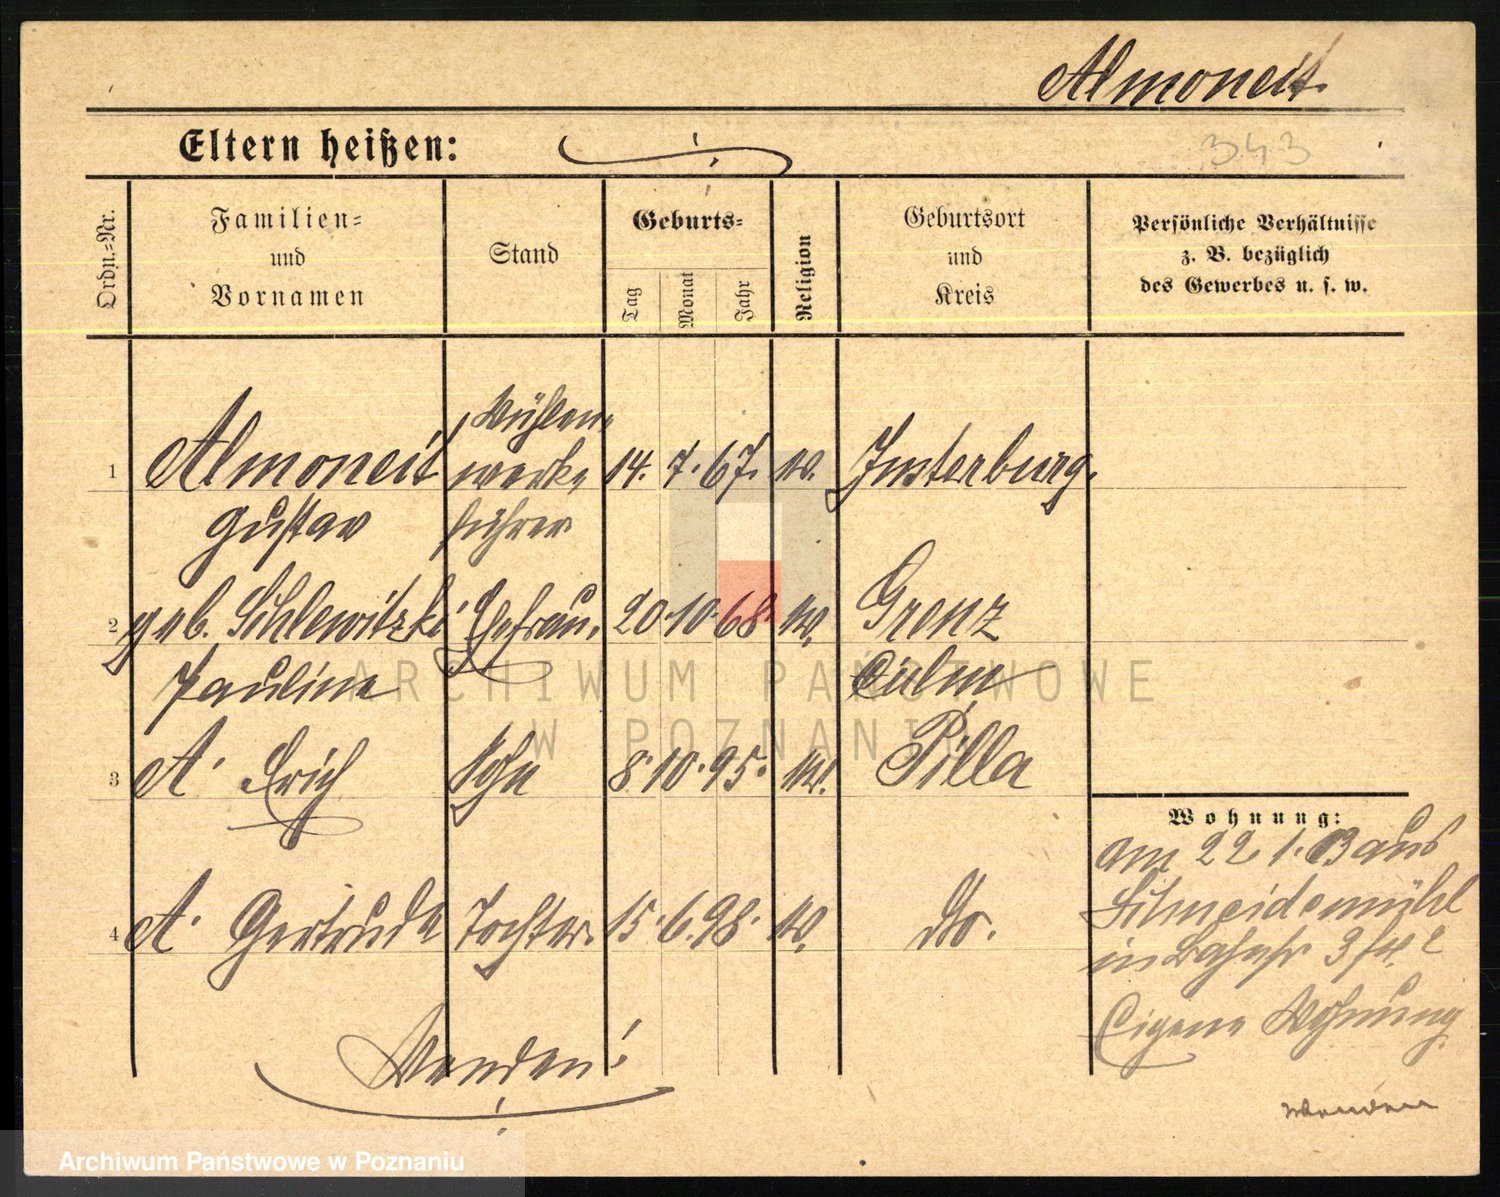 Almoneit
Eltern heißen:
343
Ordn.-Nr.
Familien-
und
Vornamen
Stand
Geburts-
Tag
Monat
Jahr
Religion
Geburtsort
und
Kreis
Persönliche Verhältnisse
z. B. bezüglich
des Gewerbes u. s. w.
Mühlen-
1 Almoneit werks 14. 7. 67. ev. Insterburg.
Gustav führer
2 geb. Schlewitzki Ehefrau. 20. 10. 68. ev. Grenz
Pauline Culm
3 A. Erich Sohn 8. 10. 95. ev. Pilla
Wohnung:
am 22. 1. 03 aus
Schneidemühl
4 A. Gertrude Tochter. 15. 6. 98. ev. dto.
in 3
Eigene Wohnung
Wenden!
Wenden
ARCHIWUM PAŃSTWOWE
W POZNANIU
Archiwum Państwowe w Poznaniu